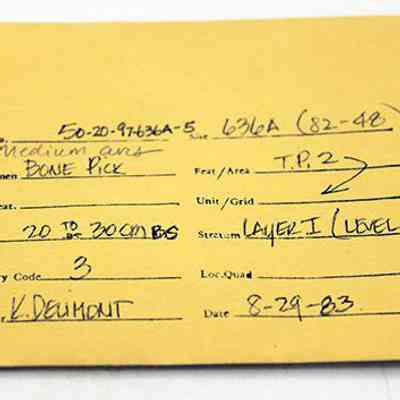 50-20-97-636A-5 Site 636A (82-48)
Medium
men BONE PICK Feat/Area T.P. 2
at. Unit/Grid
20 TO 30 CM BS Stratum LAYER I (LEVEL
ry Code 3 Loc.Quad
r K. DELIMONT Date 8-29-83